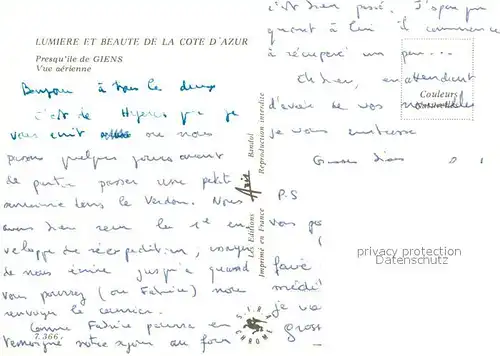 LUMIERE ET BEAUTE DE LA COTE D'AZUR
Presqu'île de GIENS
Vue aérienne
Bonjour à tous les deux
C'est de Hyères que je
vous écrit où nous
passons quelques jours avant
de partir passer une petite
semaine dans le Verdon. Nous
avons bien reçu la 1e en
veloppe de réexpédition,
de nous écrire jusqu'à quand
vous pourrez (ou Fabrice) nous
renvoyer le courrier.
Comme Fabrice pourra en
témoigner notre séjour au
7.366
Les Editions Aris Bandol
Imprimé en France Reproduction interdite
S.I.R.
CHROME
Couleurs
Naturelles
c'est bien passé. J'espère que
quant à lui il commence
à récupérer un peu...
Eh bien, en attendant
d'avoir de vos nouvelles
je vous embrasse
Grosses bises
P.S
vous
privacy protection
Datenschutz
je
gross